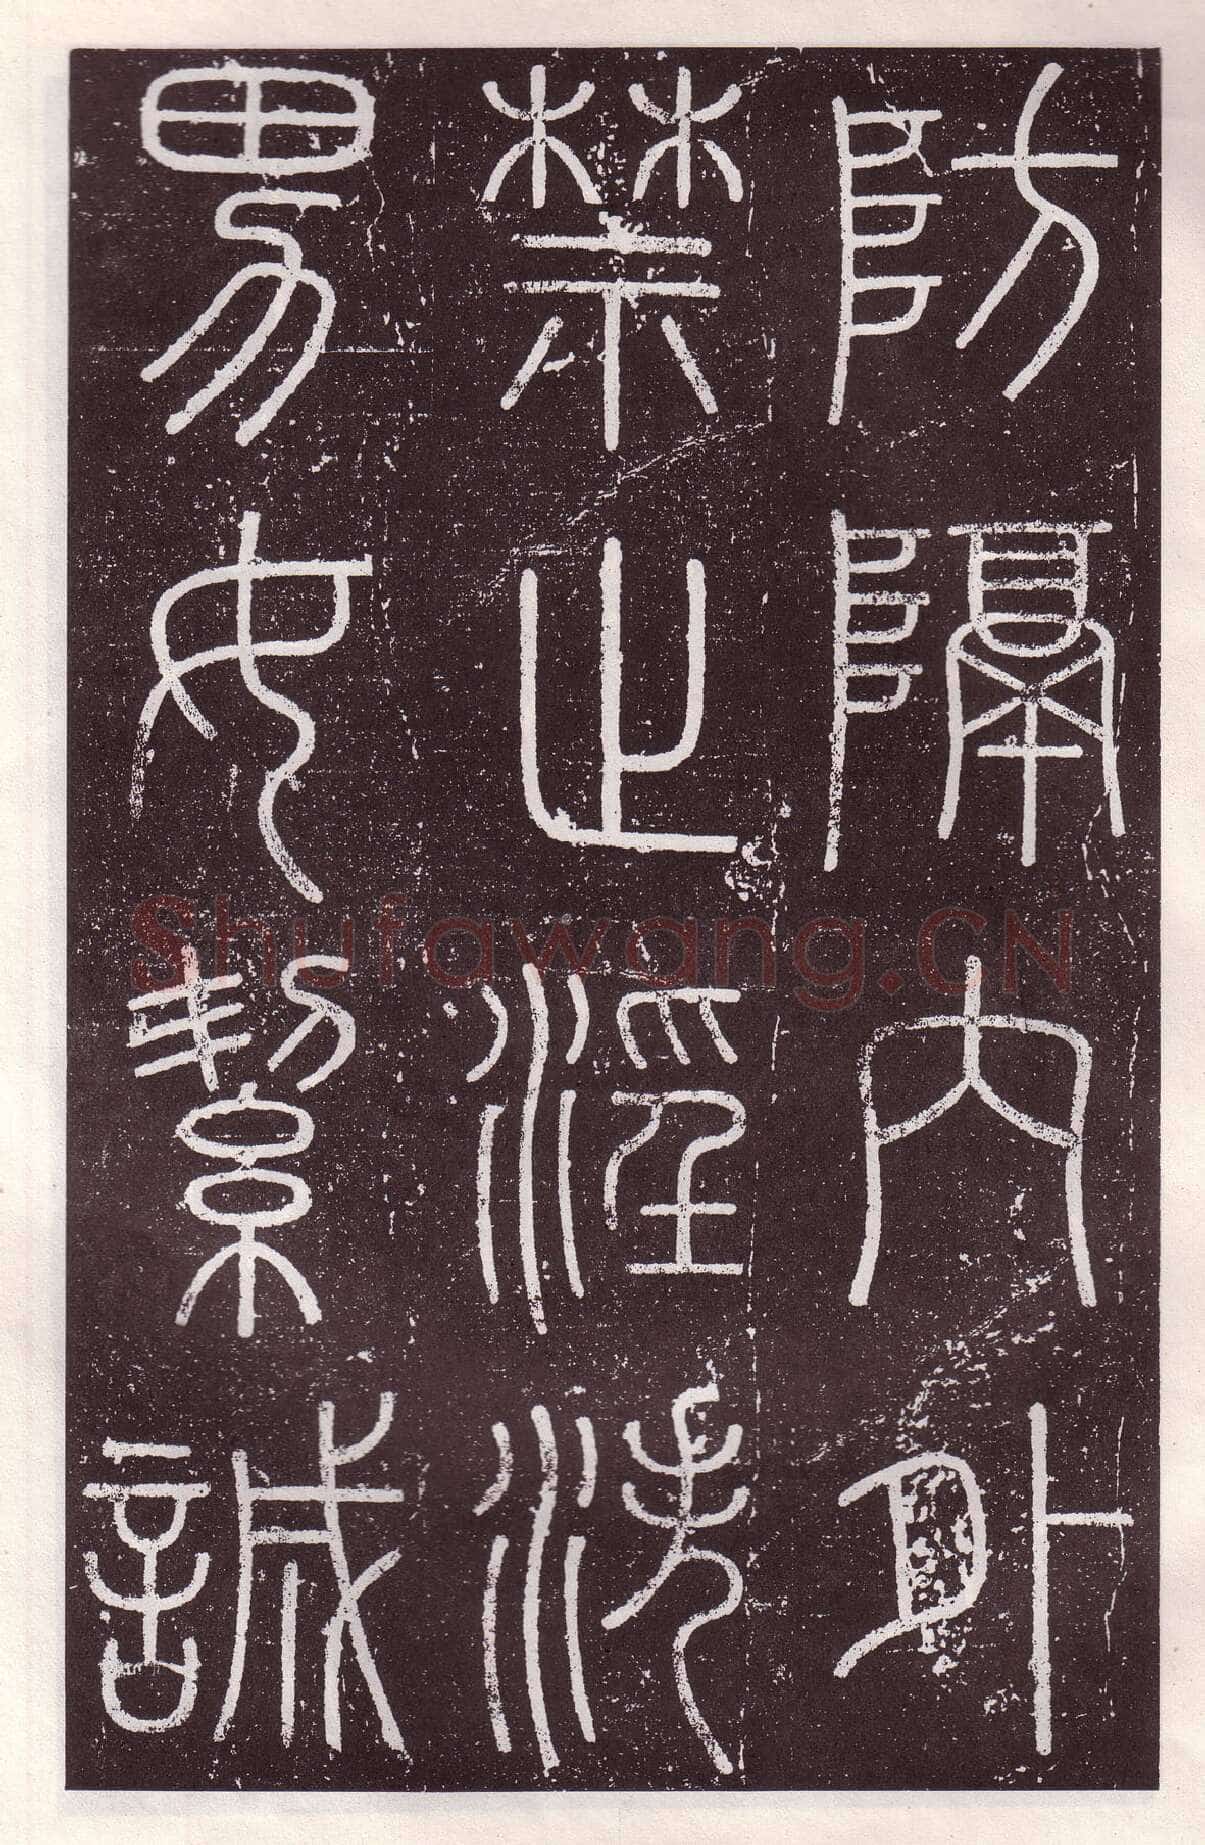 防隔內外
禁止淫泆
男女絜誠
Shufawang.CN